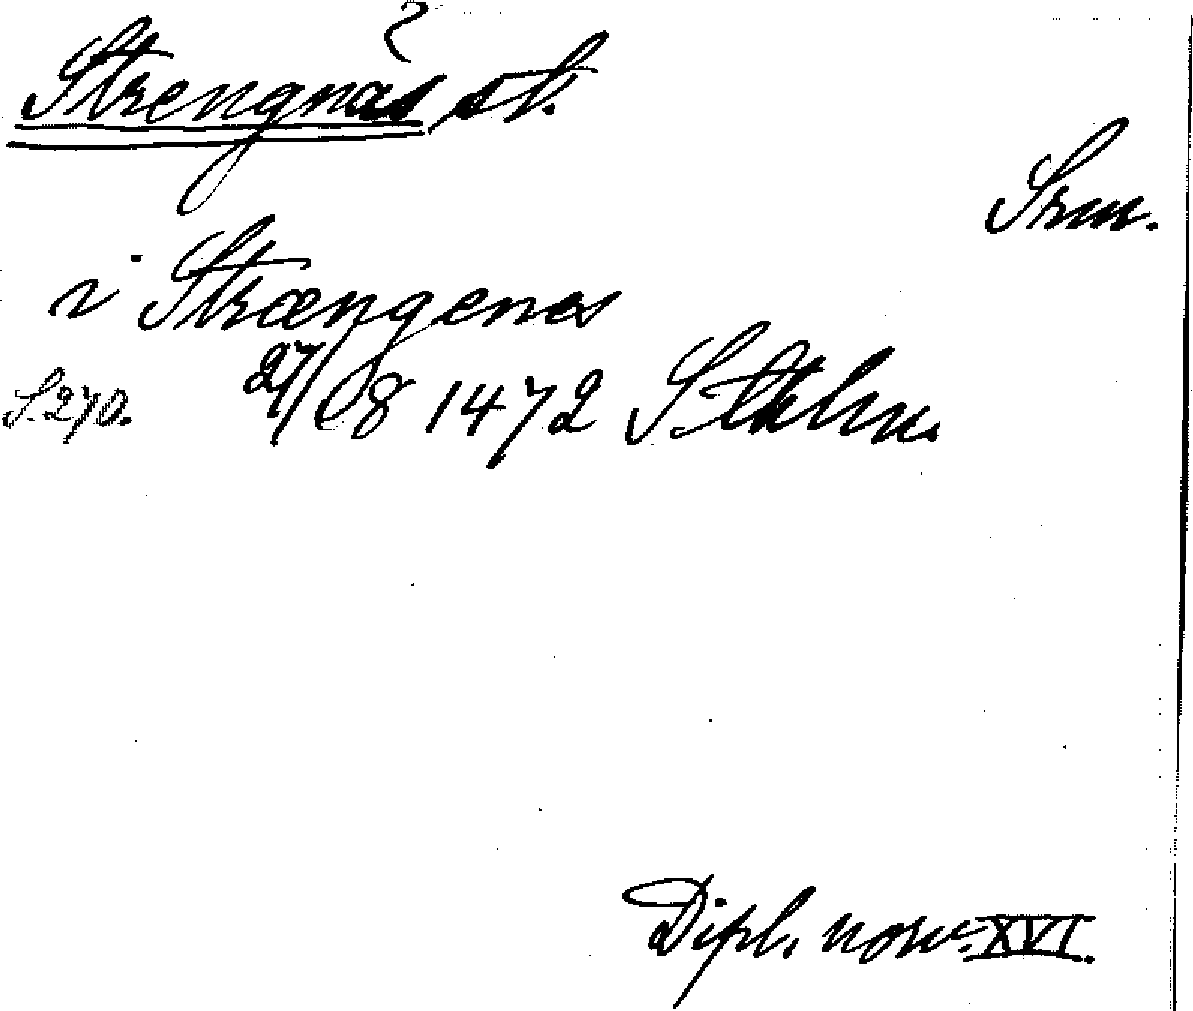 Strengnäs st.
Srm.
i Strængenes
S. 270. 27/8 1472 Sthlm.
Dipl. norv. XVI.